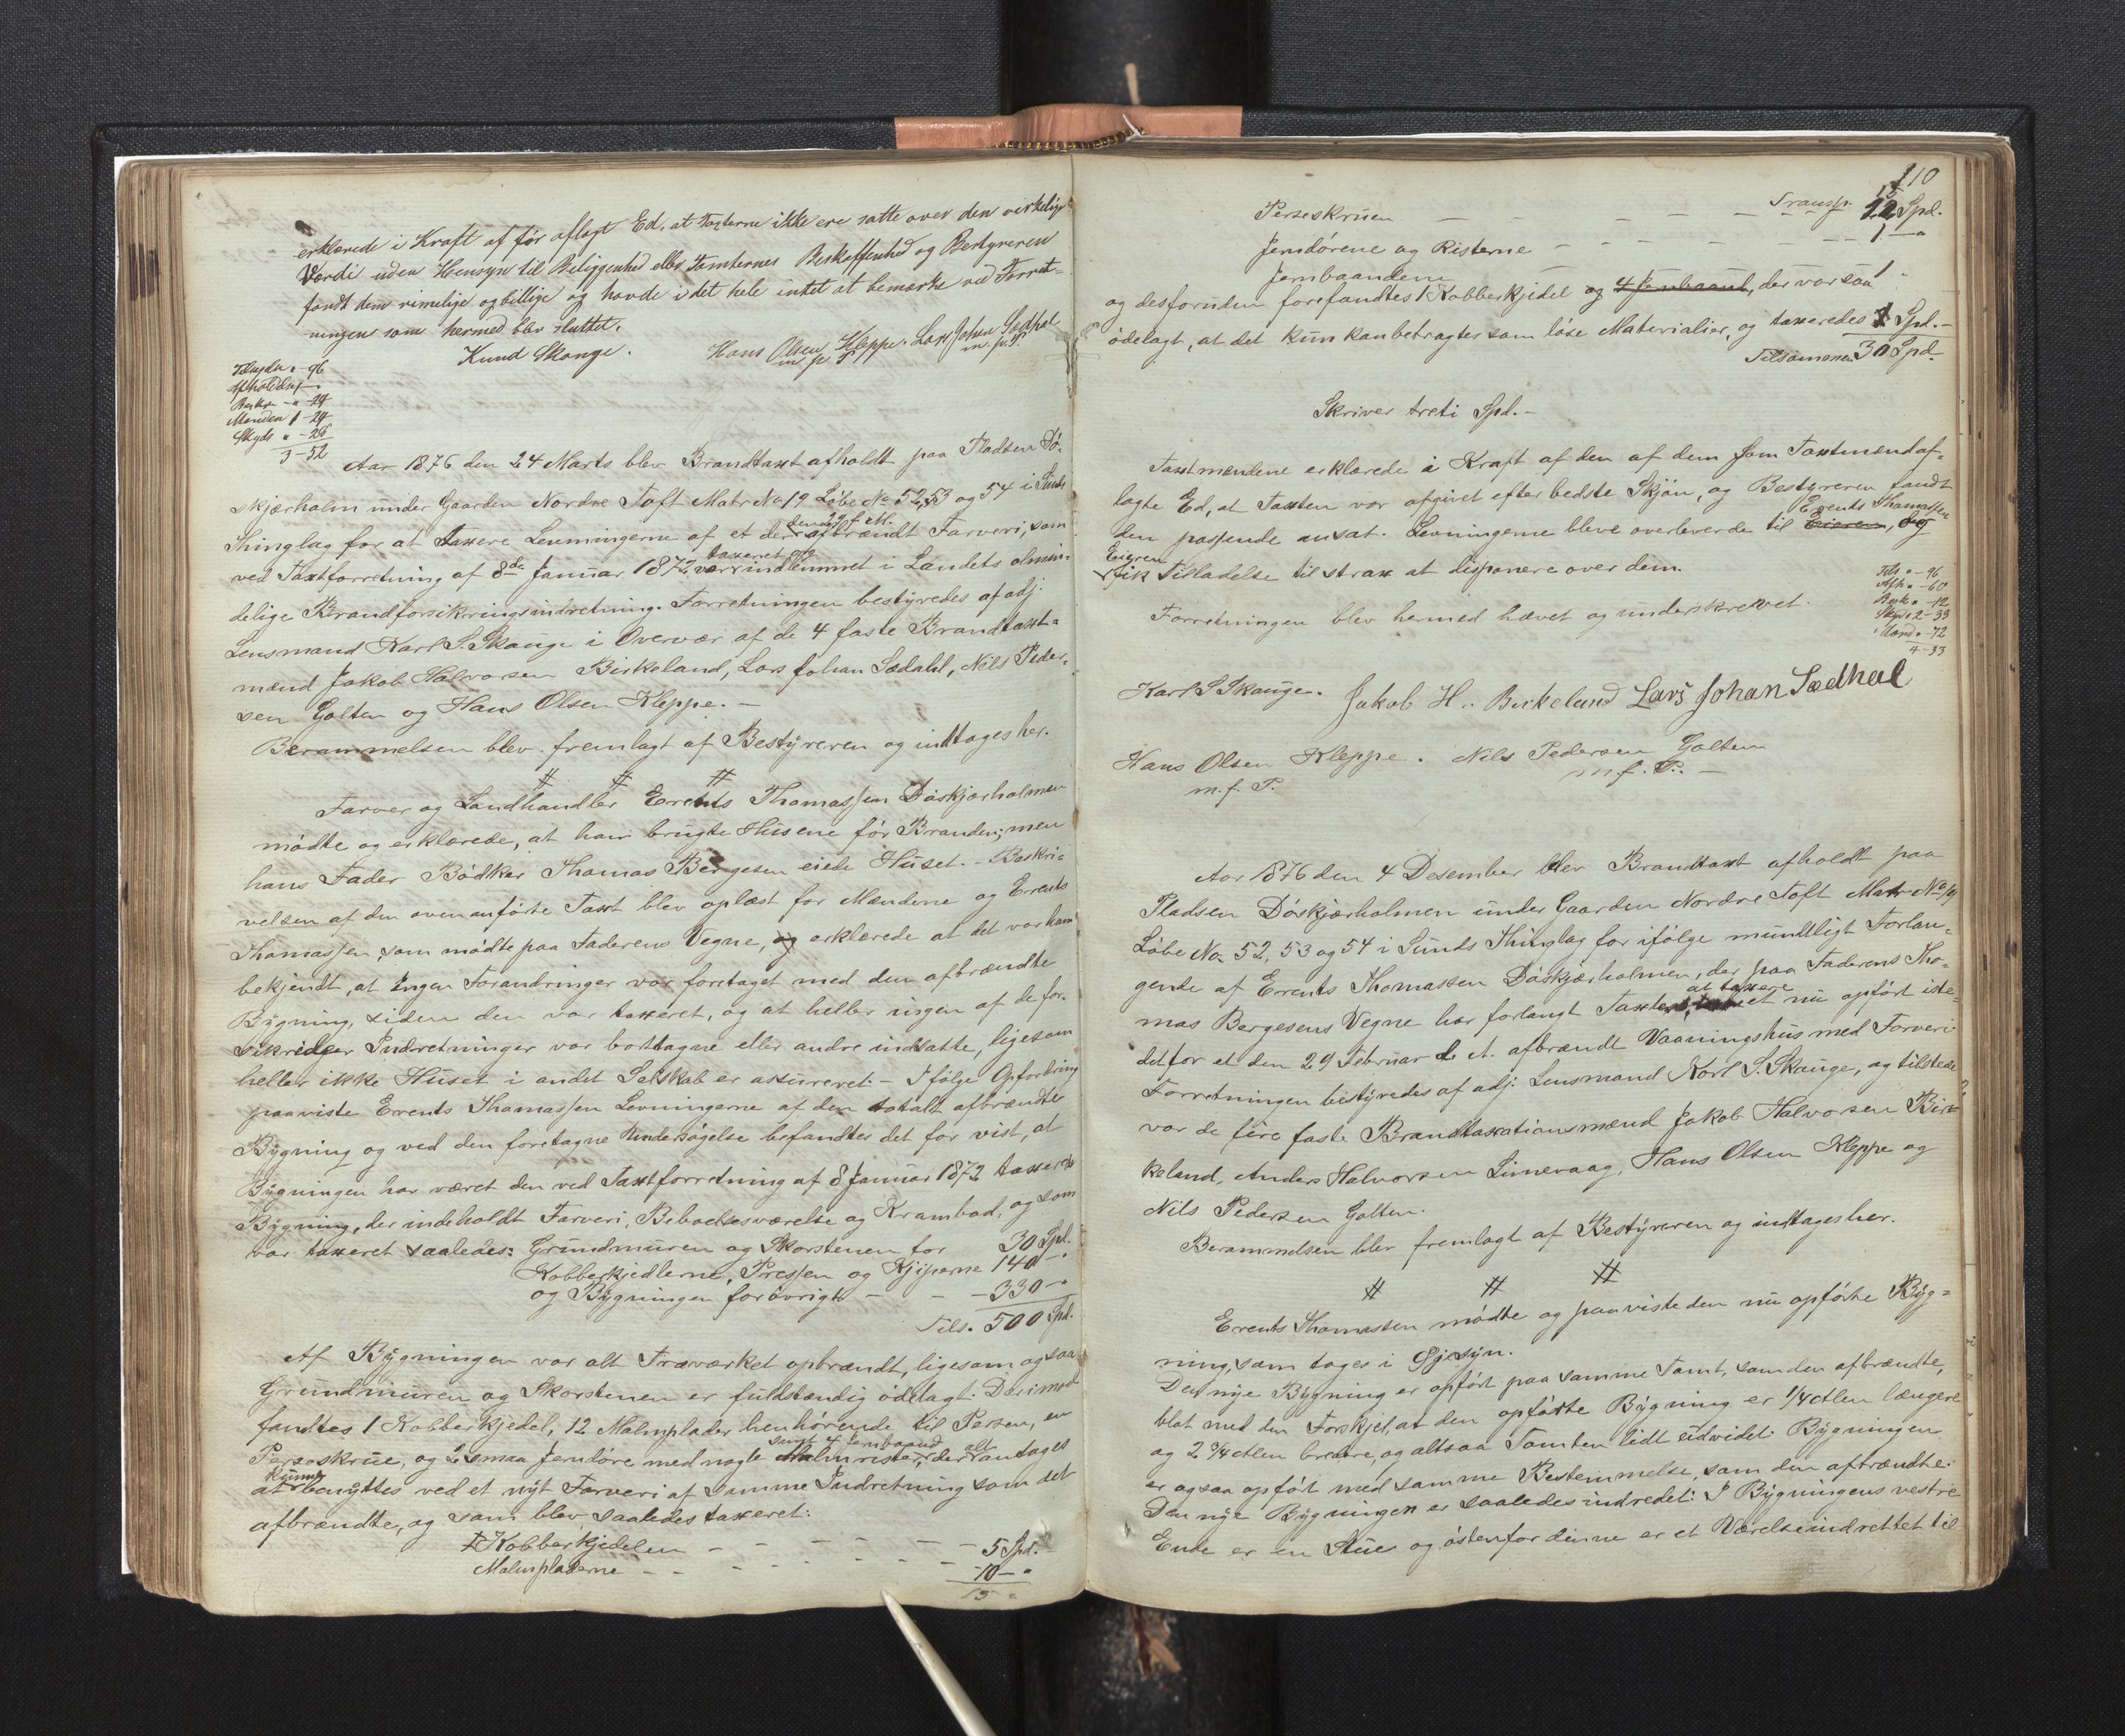 erklærede i Kraft af før aflagt Ed, at Taxterne ikke ere satte over den virkelige
Værdi uden Hensyn til Beliggenhed eller Tomternes Beskaffenhed og Bestyreren
fandt dem rimelige og billige og havde i det hele intet at bemærke ved Forret-
ningen som hermed blev sluttet.
Knud Skauge. Hans Olsen Kleppe. Lars Johan Sædhal
m. p. P. m. p. P.
96
24
Manden 1-24
Skyds
3-52
Aar 1876 den 24 Marts blev Brandtaxt afholdt paa Pladsen Dø-
skjærholm under Gaarden Nordre Toft Matr No 19 Løbe No 52, 53 og 54 i Sunds
Thinglag for at taxere Levningerne af et der den 29 f. M. afbrændt Farveri, som
ved Taxtforretning af 8de Januar 1872 var taxeret og indlemmet i Landets almin-
delige Brandforsikringsindretning. Forretningen bestyredes af adj.
Lensmand Karl S. Skauge i Overvær af de 4 faste Brandtaxt-
mænd Jakob Halvorsen Birkeland, Lars Johan Sædahl, Nils Peder-
sen Golten og Hans Olsen Kleppe. –
Berammelsen blev fremlagt af Bestyreren og indtages her.
# # #
Farver og Landhandler Erents Thomassen Døskjærholmen
mødte og erklærede, at han brugte Husene før Branden; men
hans Fader Bødker Thomas Bergesen eiede Huset. – Beskri-
velsen af den ovenanførte Taxt blev oplæst for Mændene og Erents
Thomassen, som mødte paa Faderens Vegne, og erklærede at det var ham
bekjendt, at Ingen Forandringer var foretaget med den afbrændte
Bygning, siden den var taxeret, og at heller ingen af de for-
sikrede Indretninger var borttagne eller andre indsatte, ligesom
heller ikke Huset i andet Selskab er assureret. – Ifølge Opfordring
paaviste Erents Thomassen Levningerne af den totalt afbrændte
Bygning og ved den foretagne Undersøgelse befandtes det for vist, at
Bygningen har været den ved Taxtforretning af 8 Januar 1872 taxerede
Bygning, der indeholdt Farveri, Beboelsesværelse og Krambod, og som
var taxeret saaledes: Grundmuren og Skorstenen for 30 Spd.
Kobberkjedlerne, Pressen og Kjiperne 140 – "
og Bygningen forøvrigt – – – 330 – "
Tils. 500 Spd.
Af Bygningen var alt Træværket opbrændt, ligesom ogsaa
Grundmuren og Skorstenen er fuldstændig ødelagt. Derimod
fandtes 1 Kobberkjedel, 12 Malmplader henhørende til Persen, en
Perseskrue, og 2 smaa Jerndøre med nogle Malmrister, samt 4 Jernbaand der alt antages
at kunne benyttes ved et nyt Farveri af samme Indretning som det
afbrændte, og som blev saaledes taxeret:
1 Kobberkjedelen – – – – – 5 Spd. –
Malmpladerne – – – – – – 10 – "
15 "
110
Transp. 15
Perseskruen – – – – – 12 Spd.
Jerndørene og Risterne – – – – – – 1 – "
Jernbaandene – 1 "
og desforuden forefandtes 1 Kobberkjedel og 4 Jernbaand, der var saa
ødelagt, at det kun kan betragtes som løse Materialier, og taxeredes 1 Spd. –
Tilsammen 30 Spd.
Skriver treti Spd. –
Taxtmændene erklærede i Kraft af den af dem som Taxtmænd af-
lagte Ed, at Taxten var afgivet efter bedste Skjøn, og Bestyreren fandt
den passende ansat. Levningerne bleve overleverde til Eieren, Erents Thomassen og
Eieren fik Tilladelse til strax at disponere over dem.
Forretningen blev hermed hævet og underskrevet.
Tils " – 96
Afh. " – 60
Besk. " – 12
Skyds 2 – 33
Mænd. " – 72
4 – 33
Karl S Skauge. Jakob H. Birkeland Lars Johan Sædhal
Hans Olsen Kleppe. Nils Pedersen Golten
m. f. P. m. f. P. –
Aar 1876 den 4 Desember blev Brandtaxt afholdt paa
Pladsen Døskjærholmen under Gaarden Nordre Toft Matr No 19
Løbe No 52, 53 og 54 i Sunds Thinglag for ifølge mundtligt Forlan-
gende af Erents Thomassen Døskjærholmen, der paa Faderens Tho-
mas Bergesens Vegne har forlangt Taxten, at taxere et nu opført iste-
detfor et den 29 Februar d. A. afbrændt Vaaningshus med Farveri
Forretningen bestyredes af adj. Lensmand Karl S. Skauge, og tilstede
var de fire faste Brandtaxationsmænd Jakob Halvorsen Bir-
keland, Anders Halvorsen Limevaag, Hans Olsen Kleppe og
Nils Pedersen Golten.
Berammelsen blev fremlagt af Bestyreren og indtages her.
# # #
Erents Thomassen mødte og paaviste den nu opførte Byg-
ning, som tages i Øjesyn.
Den nye Bygning er opført paa samme Tomt, som den afbrændte,
blot med den Forskjel, at den opførte Bygning er 1/4 Alen længere
og 2 3/4 Alen bredere, og altsaa Tomten lidt udvidet. Bygningen
er ogsaa opført med samme Bestemmelse, som den afbrændte.
Den nye Bygningen er saaledes indredet: I Bygningens vestre
Ende er en Stue og østenfor denne er et Værelse indrettet til